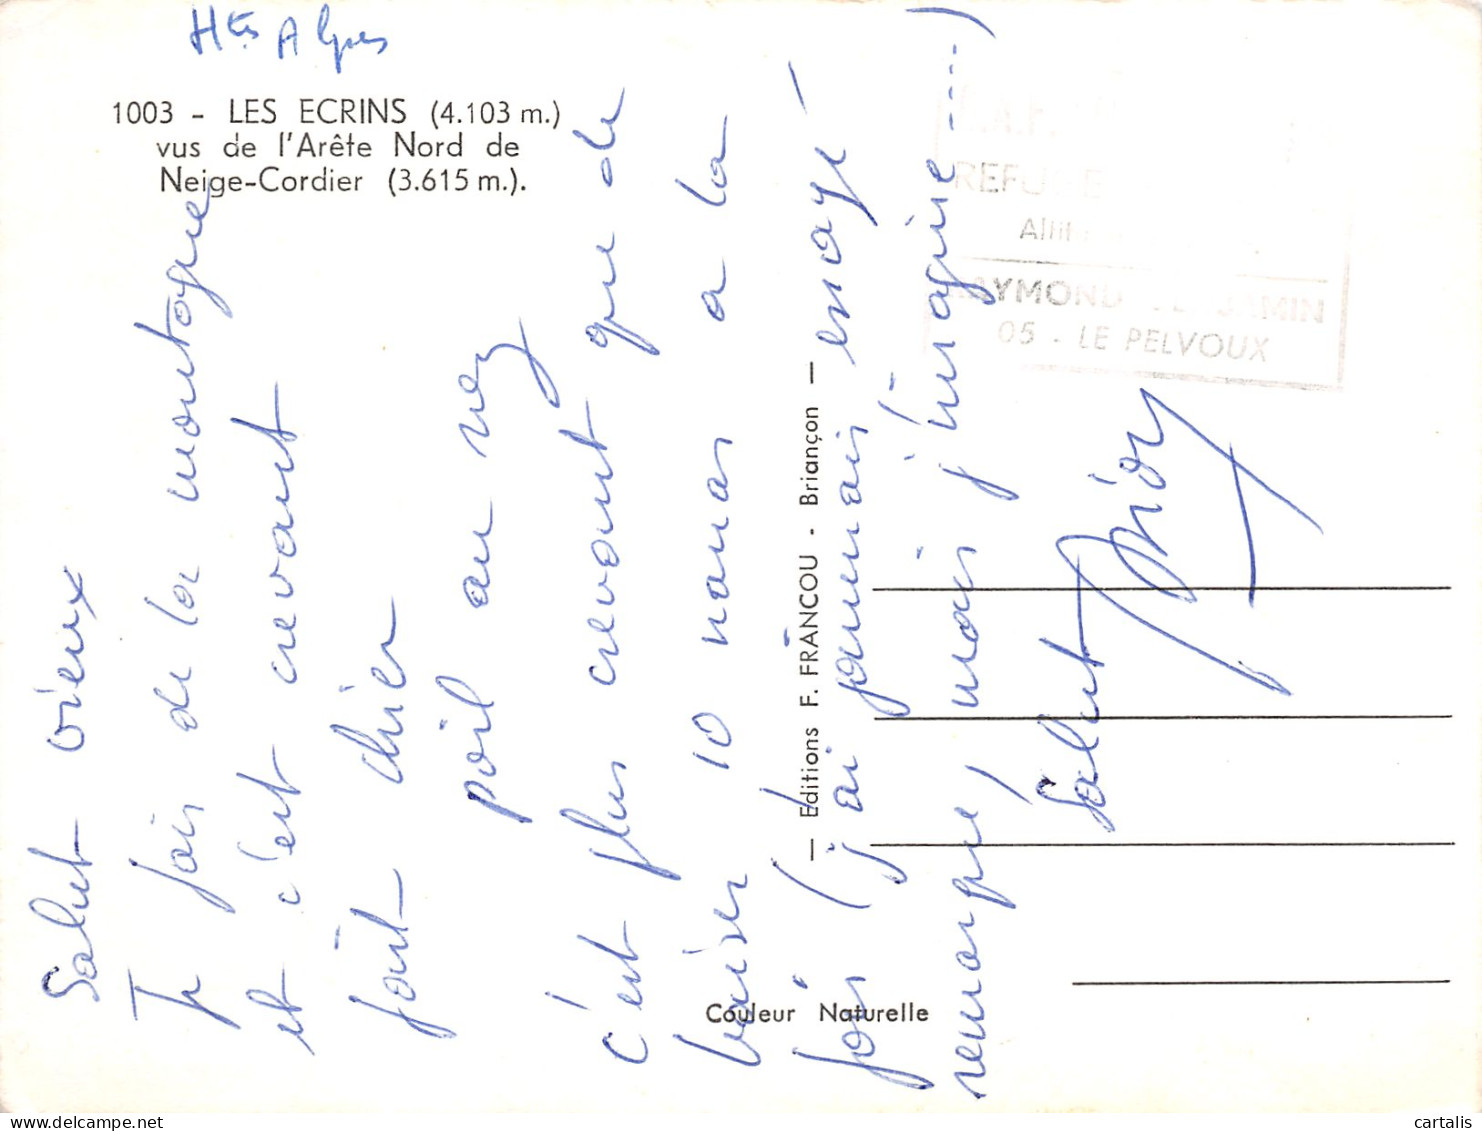 Htes Alpes
1003 - LES ECRINS (4.103 m.)
vus de l'Arête Nord de
Neige-Cordier (3.615 m.).
Salut vieux
Je fais de la montagne
et c'est crevant
fait chier
poil au nez
c'est plus crevant que de
baiser 10 nanas a la
fois (j'ai jamais essayé
remarque, mais j'imagine .....)
Salut
— Editions F. FRANCOU - Briançon —
Couleur Naturelle
REFUGE
RAYMOND
05 - LE PELVOUX
cartalis